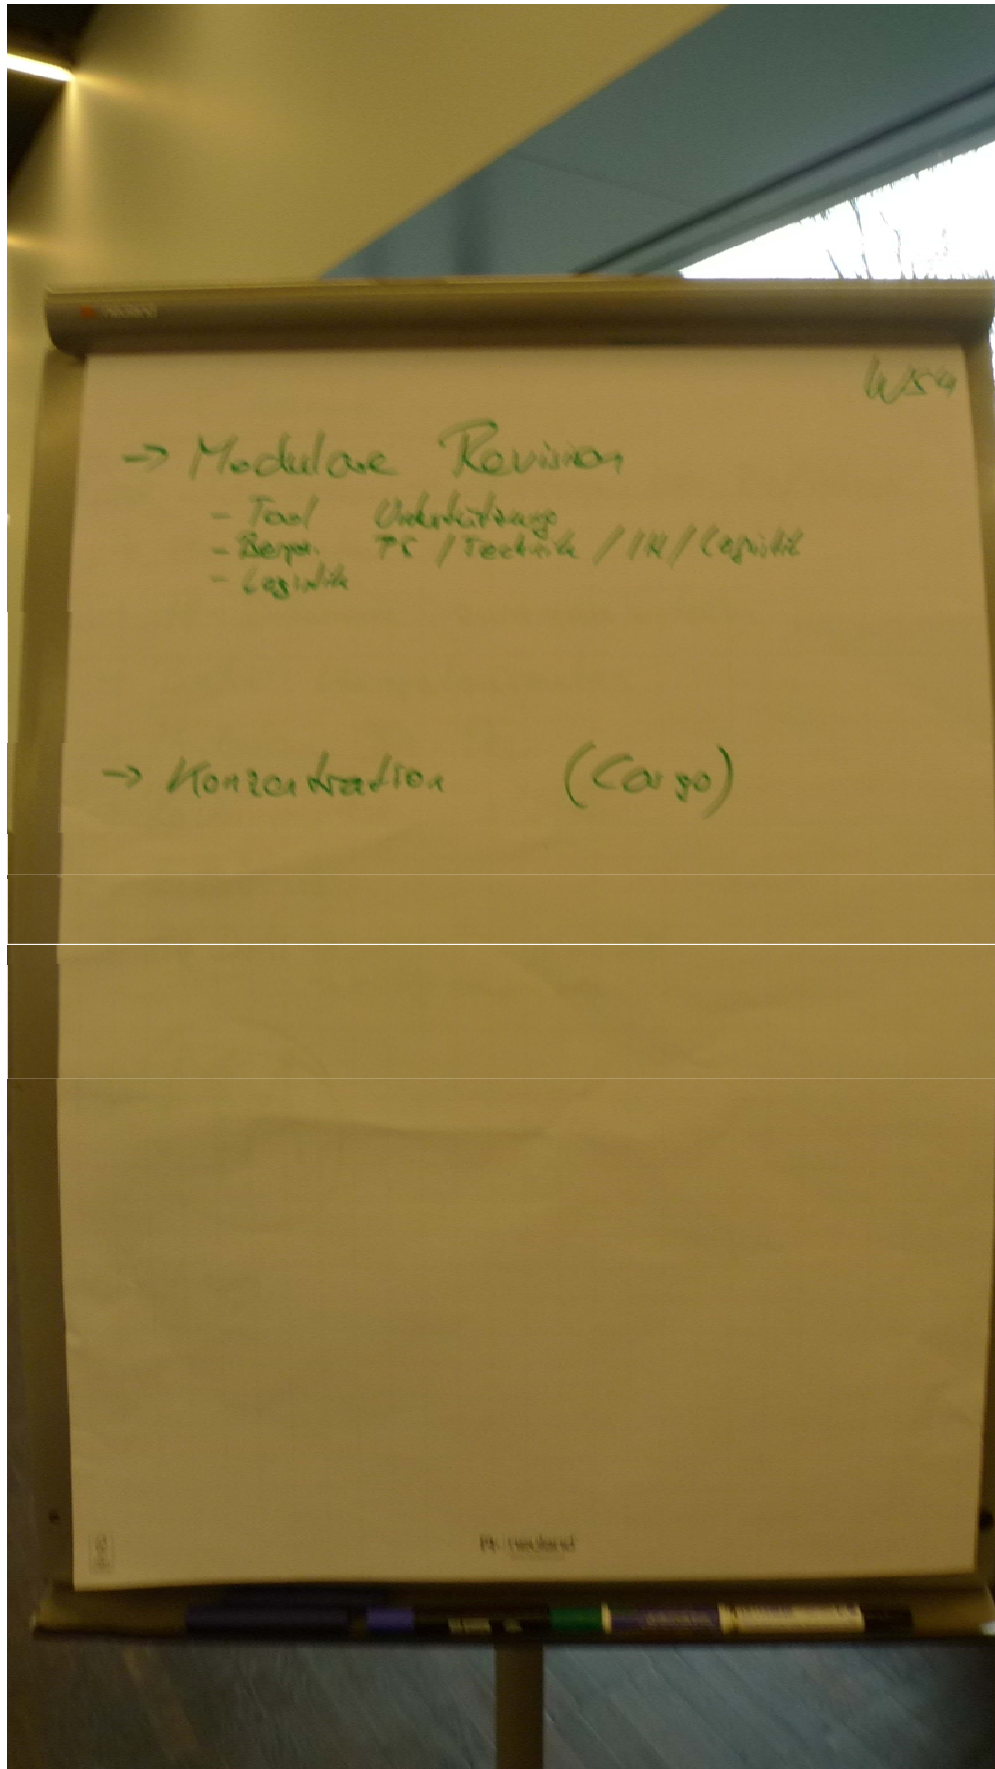 WS4
→ Modulare Revision
- Tool Unterstützung
- / Technik / / Logistik
- Logistik
→ Konzentration (Cargo)
neuland